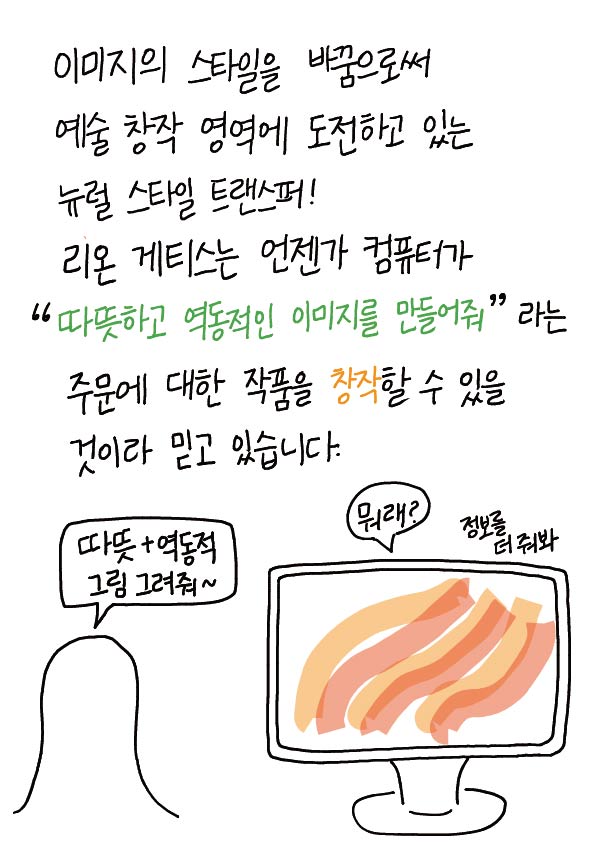 이미지의 스타일을 바꿈으로써
예술 창작 영역에 도전하고 있는
뉴럴 스타일 트랜스퍼!
리온 게티스는 언젠가 컴퓨터가
“따뜻하고 역동적인 이미지를 만들어줘” 라는
주문에 대한 작품을 창작할 수 있을
것이라 믿고 있습니다.
따뜻+역동적
그림 그려줘~
뭐래?
정보를
더 줘봐